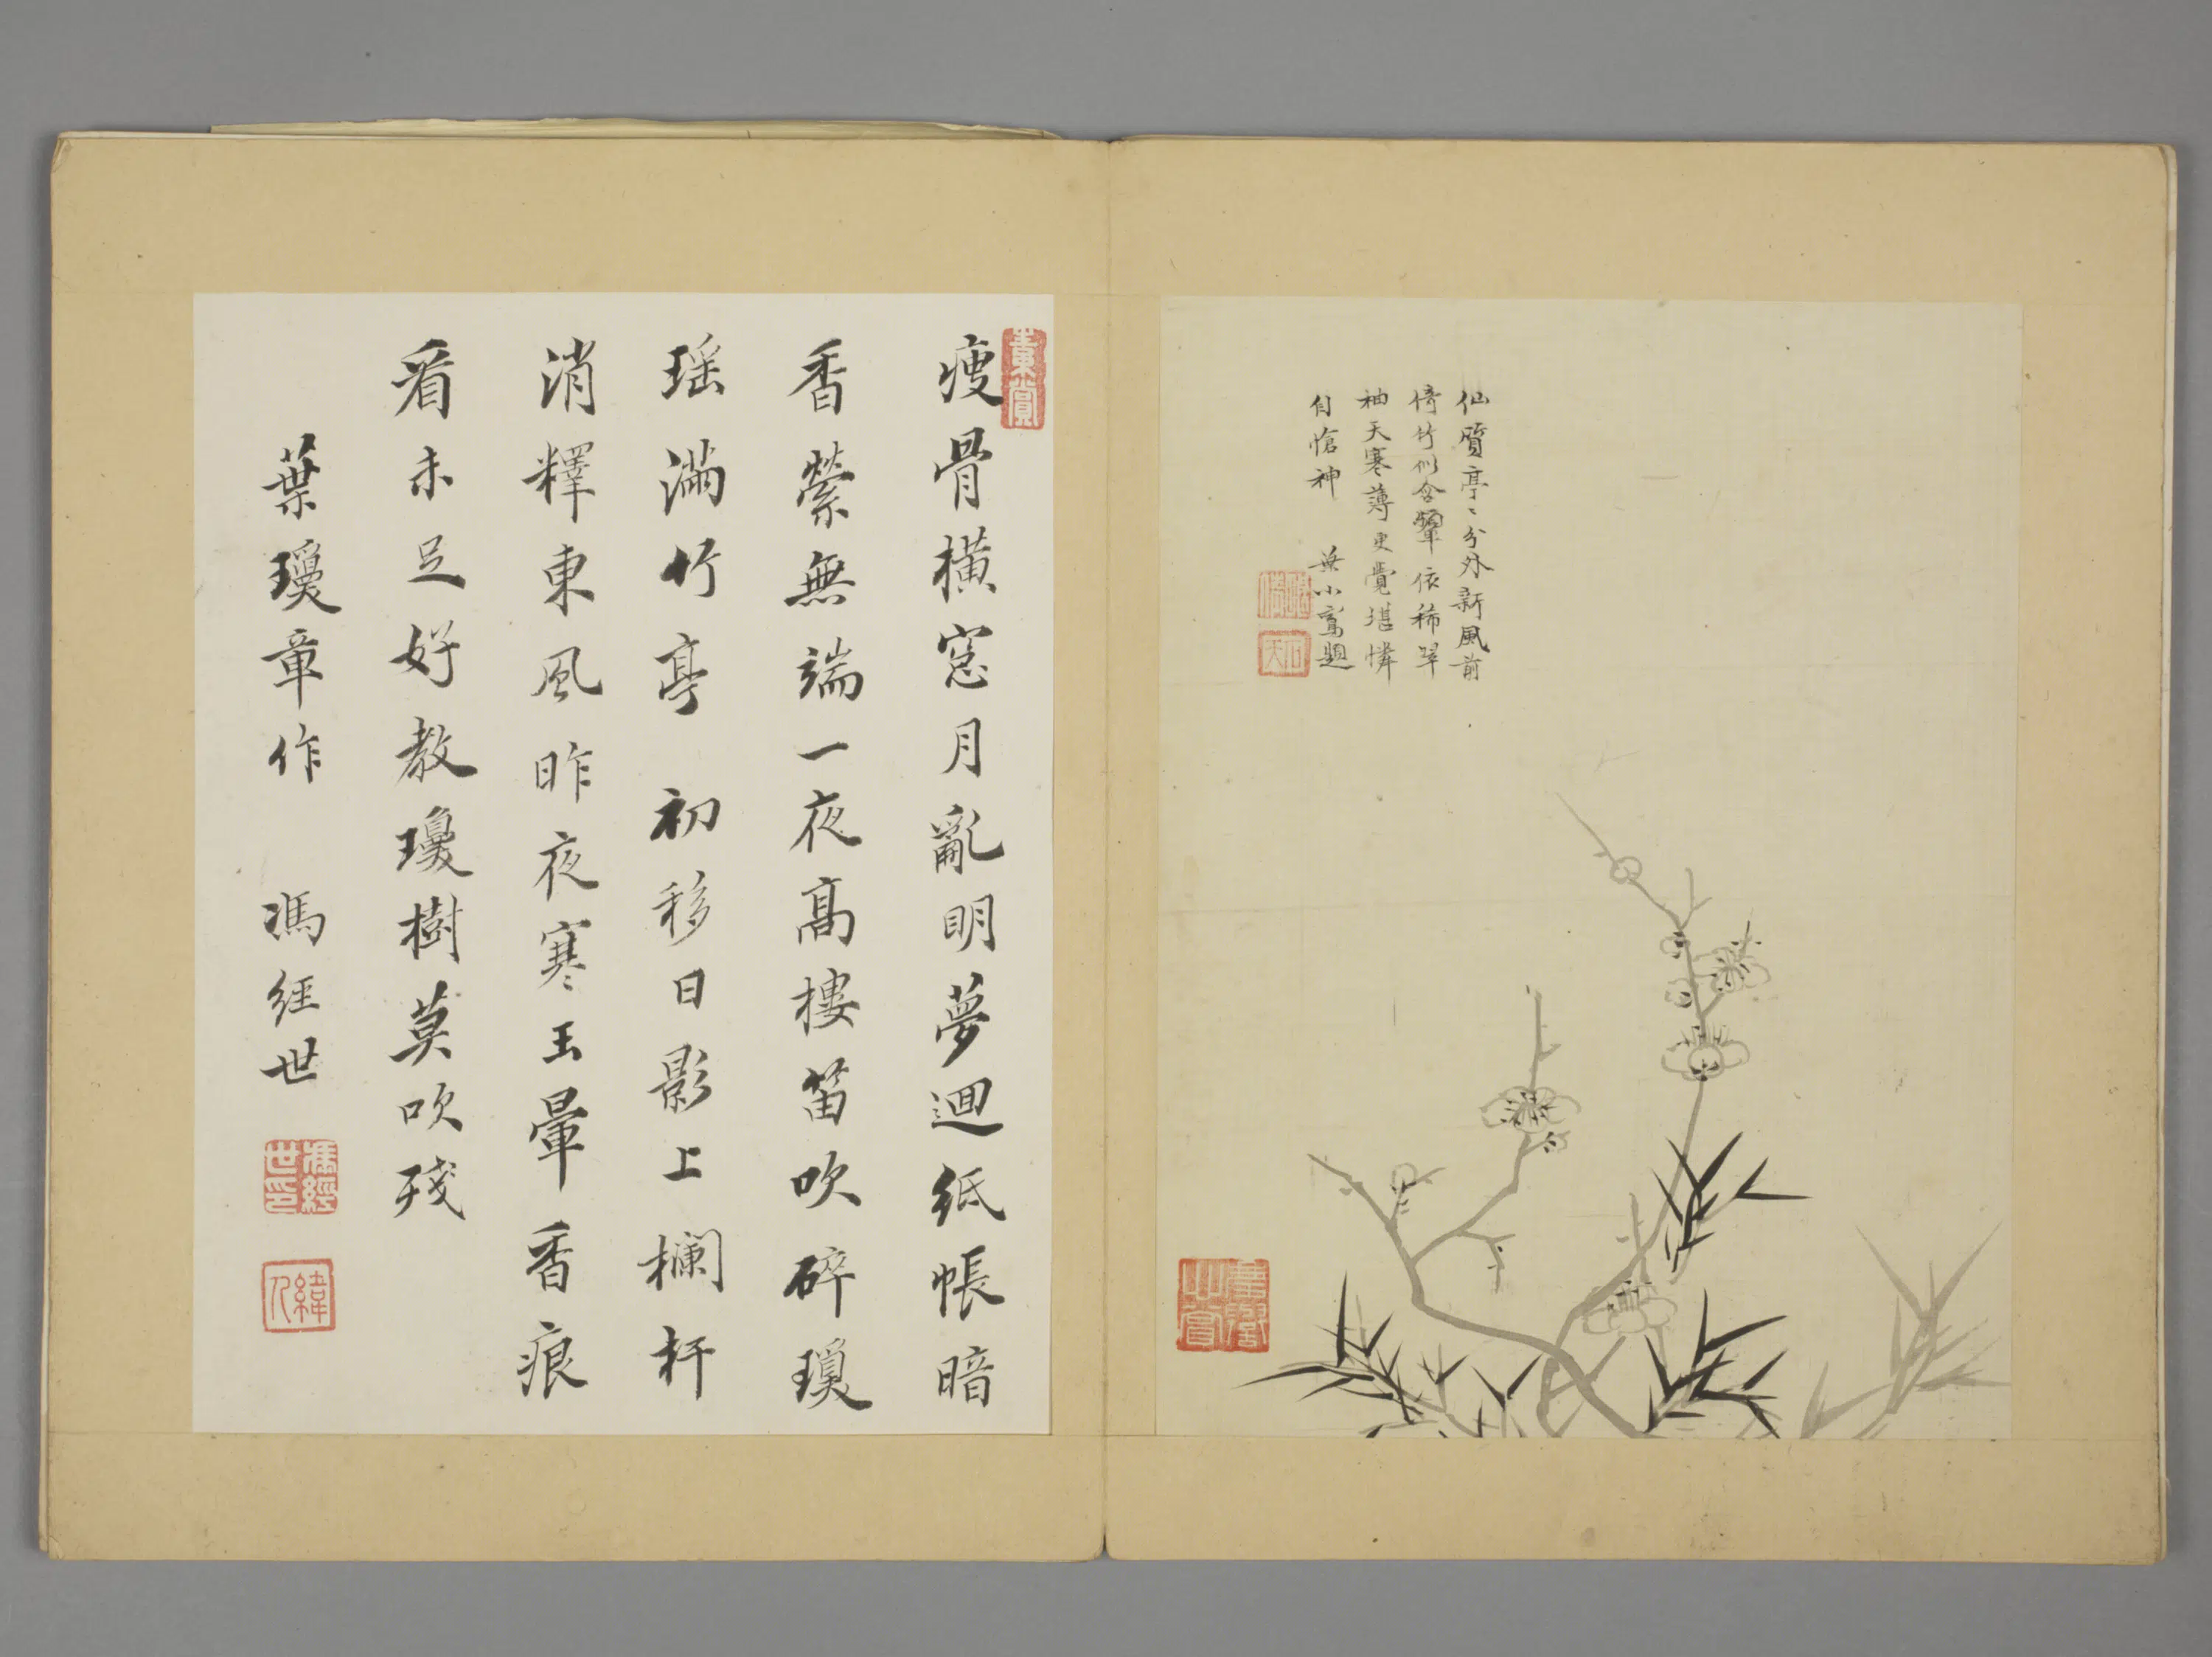 仙質亭〻分外新風前
倚竹似含顰依稀翠
袖天寒薄更覺堪憐
自愴神 葉小鸞題
瘦骨橫窓月亂明夢迴紙帳暗
香縈無端一夜髙樓笛吹碎瓊
瑶滿竹亭 初移日影上欄杆
消釋東風昨夜寒玉暈香痕
看未足好教瓊樹莫吹殘
葉瓊章作 馮經世
馮經世印
緯人